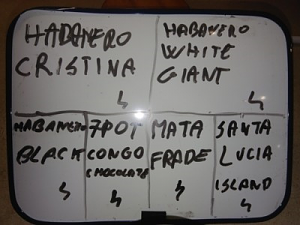 HABANERO
CRISTINA
4
HABANERO
WHITE
GIANT
4
HABANERO
BLACK
4
7POT
CONGO
CHOCOLATE
4
MATA
FRADE
4
SANTA
LUCIA
ISLAND
4